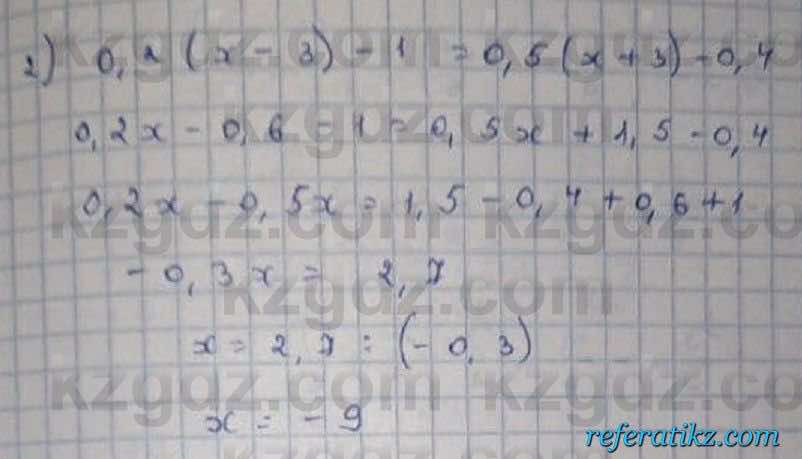 2) 0,2 (x - 3) - 1 = 0,5 (x + 3) - 0,4
0,2x - 0,6 - 1 = 0,5x + 1,5 - 0,4
0,2x - 0,5x = 1,5 - 0,4 + 0,6 + 1
- 0,3x = 2,7
x = 2,7 : (- 0,3)
x = - 9
kzgdz.com
kzgdz.com
kzgdz.com
kzgdz.com
kzgdz.com
referatikz.com